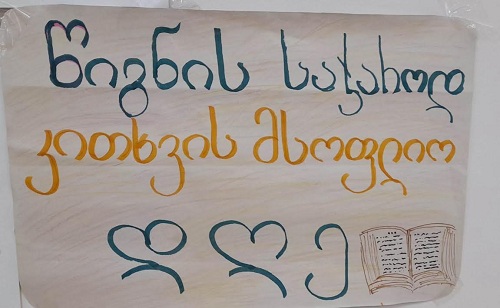 წიგნის საჯაროდ
კითხვის მსოფლიო
დღე